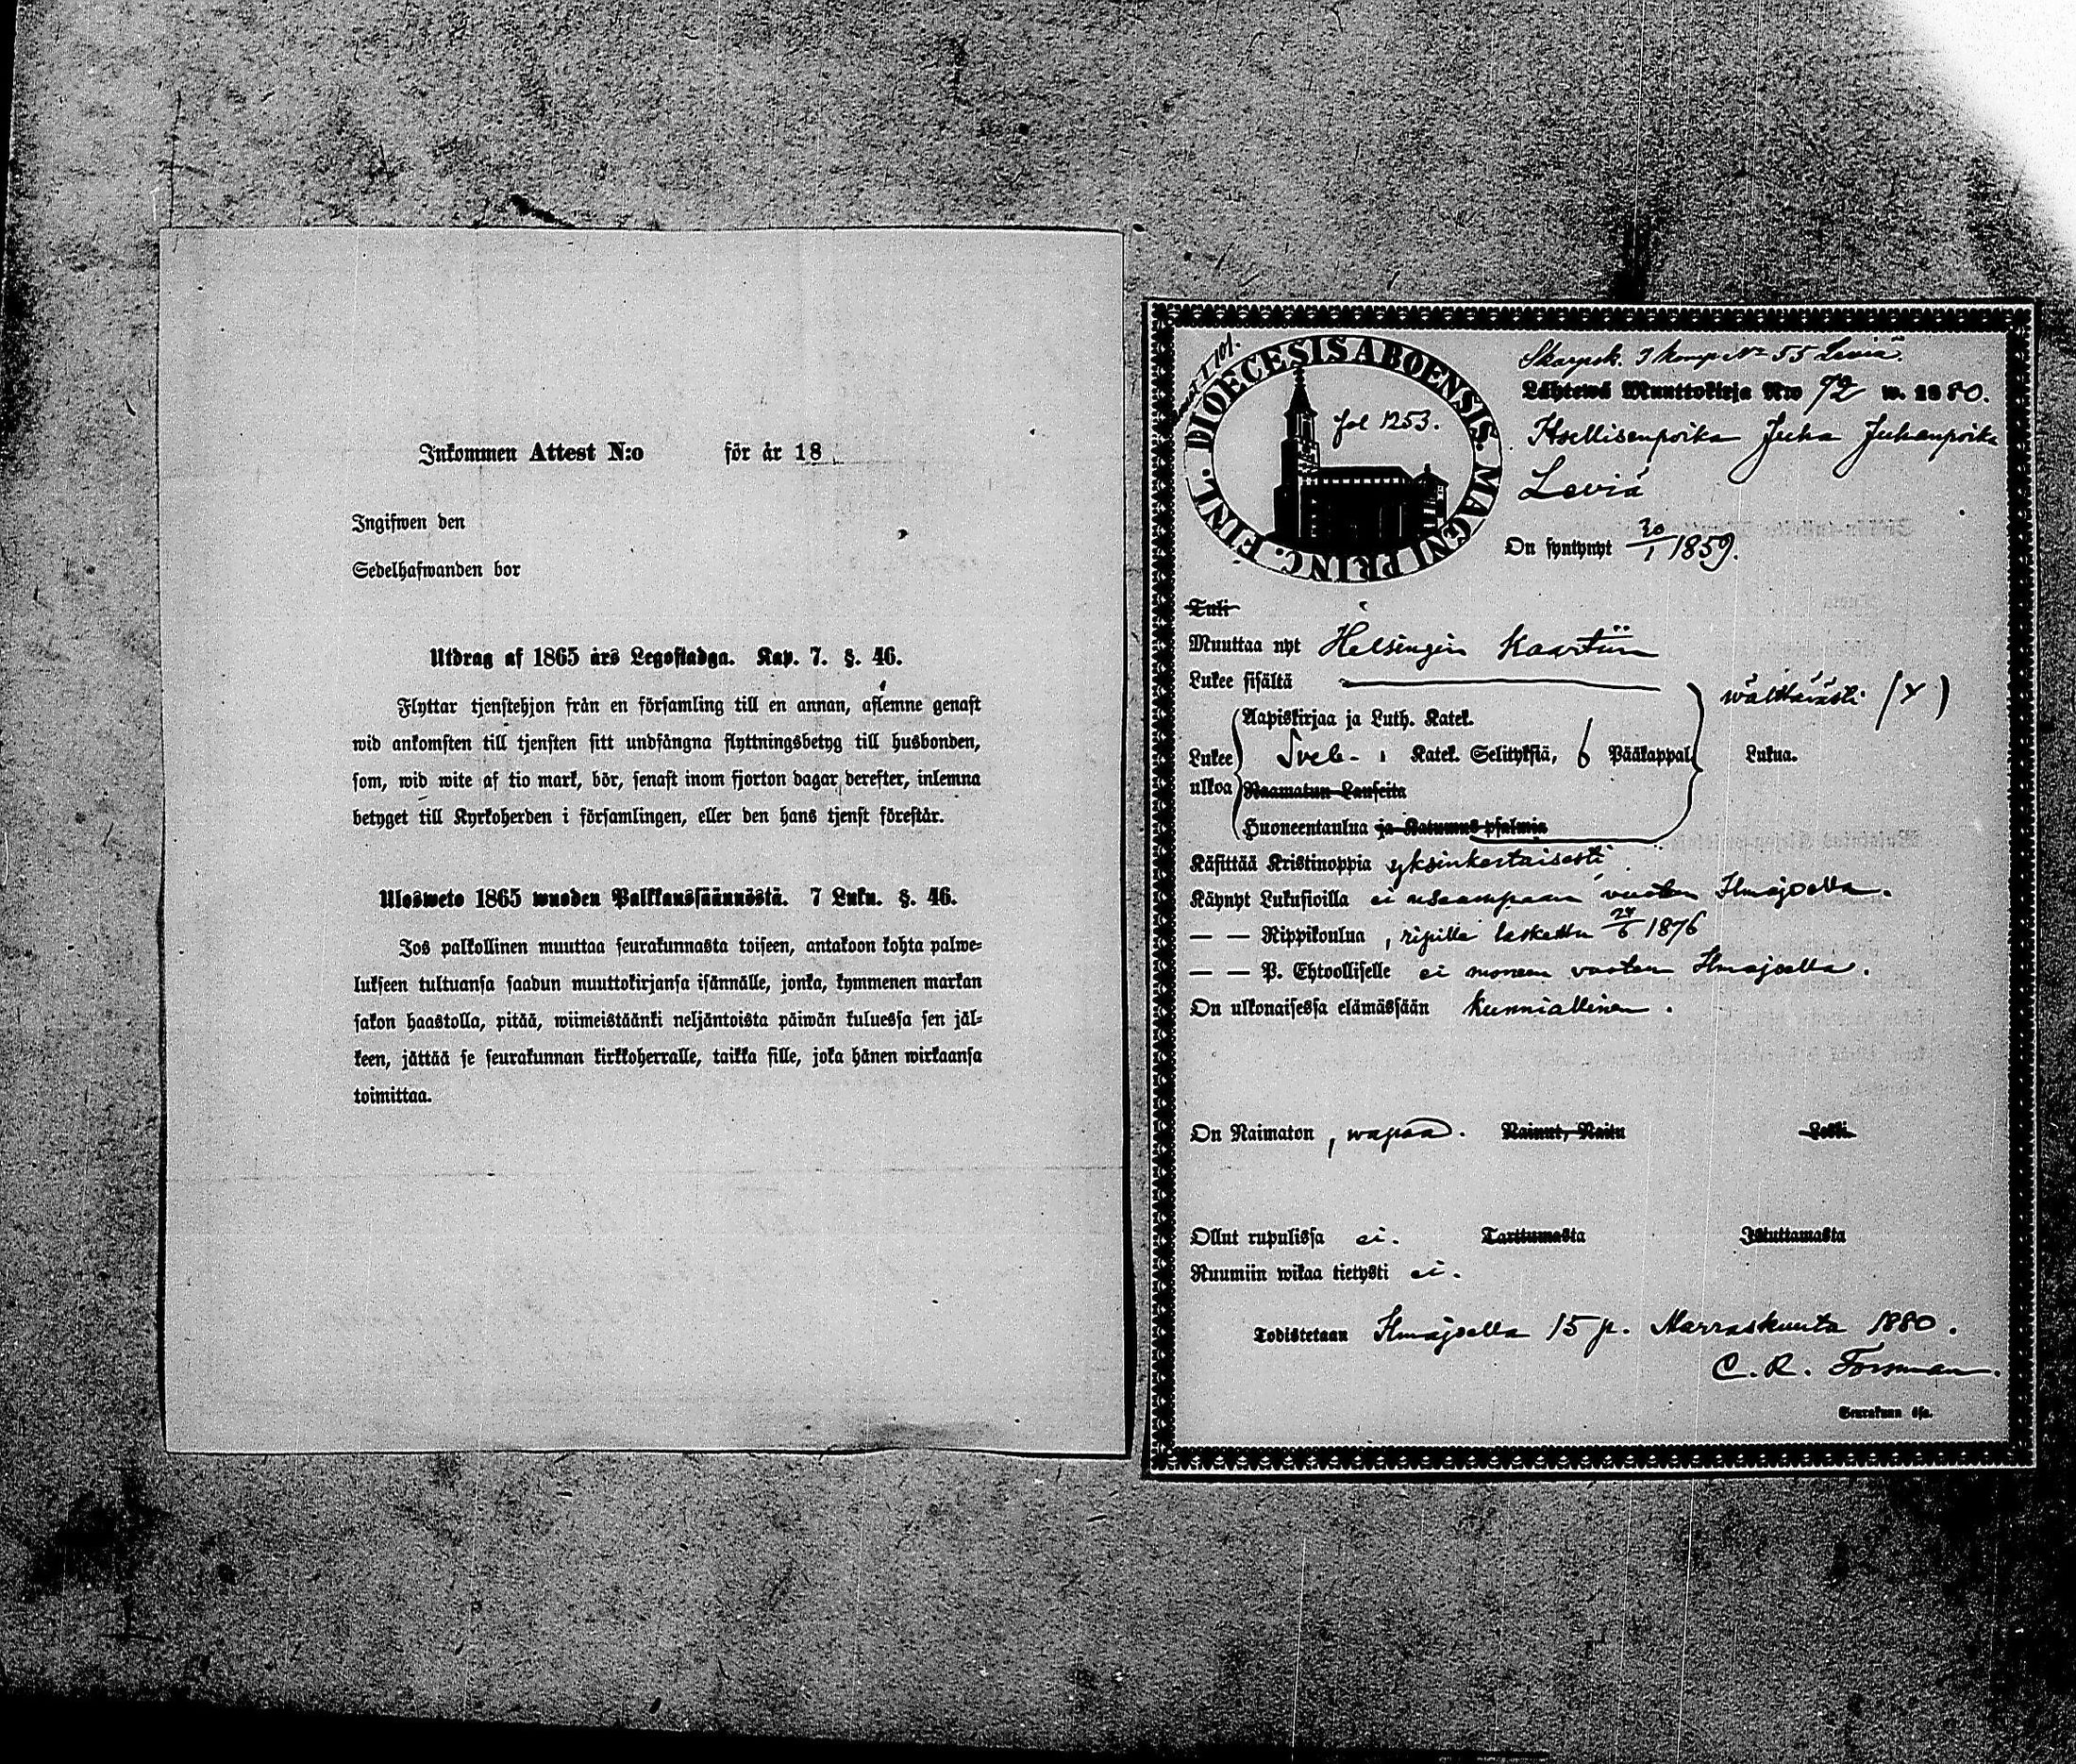 Inkommen Attest N:o för år 18
Ingifwen den
Sedelhafwanden bor
Utdrag af 1865 års Legostadga. Kap. 7. §. 46.
Flyttar tjenstehjon från en församling till en annan, aflemne genast
wid ankomsten till tjensten sitt undfångna flyttningsbetyg till husbonden,
som, wid wite af tio mark, bör, senast inom fjorton dagar derefter, inlemna
betyget till Kyrkoherden i församlingen, eller den hans tjenst förestår.
Ulosweto 1865 wuoden Palkkaussäännöstä. 7 Luku. §. 46.
Jos palkollinen muuttaa seurakunnasta toiseen, antakoon kohta palwe-
lukseen tultuansa saadun muuttokirjansa isännälle, jonka, kymmenen markan
sakon haastolla, pitää, wiimeistäänki neljäntoista päiwän kuluessa sen jäl-
keen, jättää se seurakunnan kirkkoherralle, taikka sille, joka hänen wirkaansa
toimittaa.
DIOECESIS ABOENSIS. MAGNI PRINC. FINL.
fol 1253.
Skarpsk. 3 komp. No 55 Leviä
Lähtewä Muuttokirja Nro 72 w. 1880.
Itsellisenpoika Juha Juhanpoika
Leviä
On syntynyt 30/1 1859.
Tuli
Muuttaa nyt Helsingin Kaartiin
Lukee sisältä
wälttäwästi (x)
Aapiskirjaa ja Luth. Katek.
Lukee Sveb. Katek. Selityksiä, 6 Pääkappal. Lukua.
ulkoa Raamatun Lauseita
Huoneentaulua ja Katumus psalmia
Käsittää Kristinoppia yksinkertaisesti
Käynyt Lukusioilla ei useampaan vuoteen Ilmajoella.
— — Rippikoulua, ripille laskettu 24/6 1876
— — P. Ehtoolliselle ei moneen vuoteen Ilmajoella.
On ulkonaisessa elämässään kunniallinen.
On Naimaton, wapaa. Nainut, Naitu Leski.
Ollut rupulissa ei. Tarttumasta Istuttamasta
Ruumiin wikaa tietysti ei.
Todistetaan Ilmajoella 15 p. Marraskuuta 1880.
C. R. Forsman.
Seurakunn